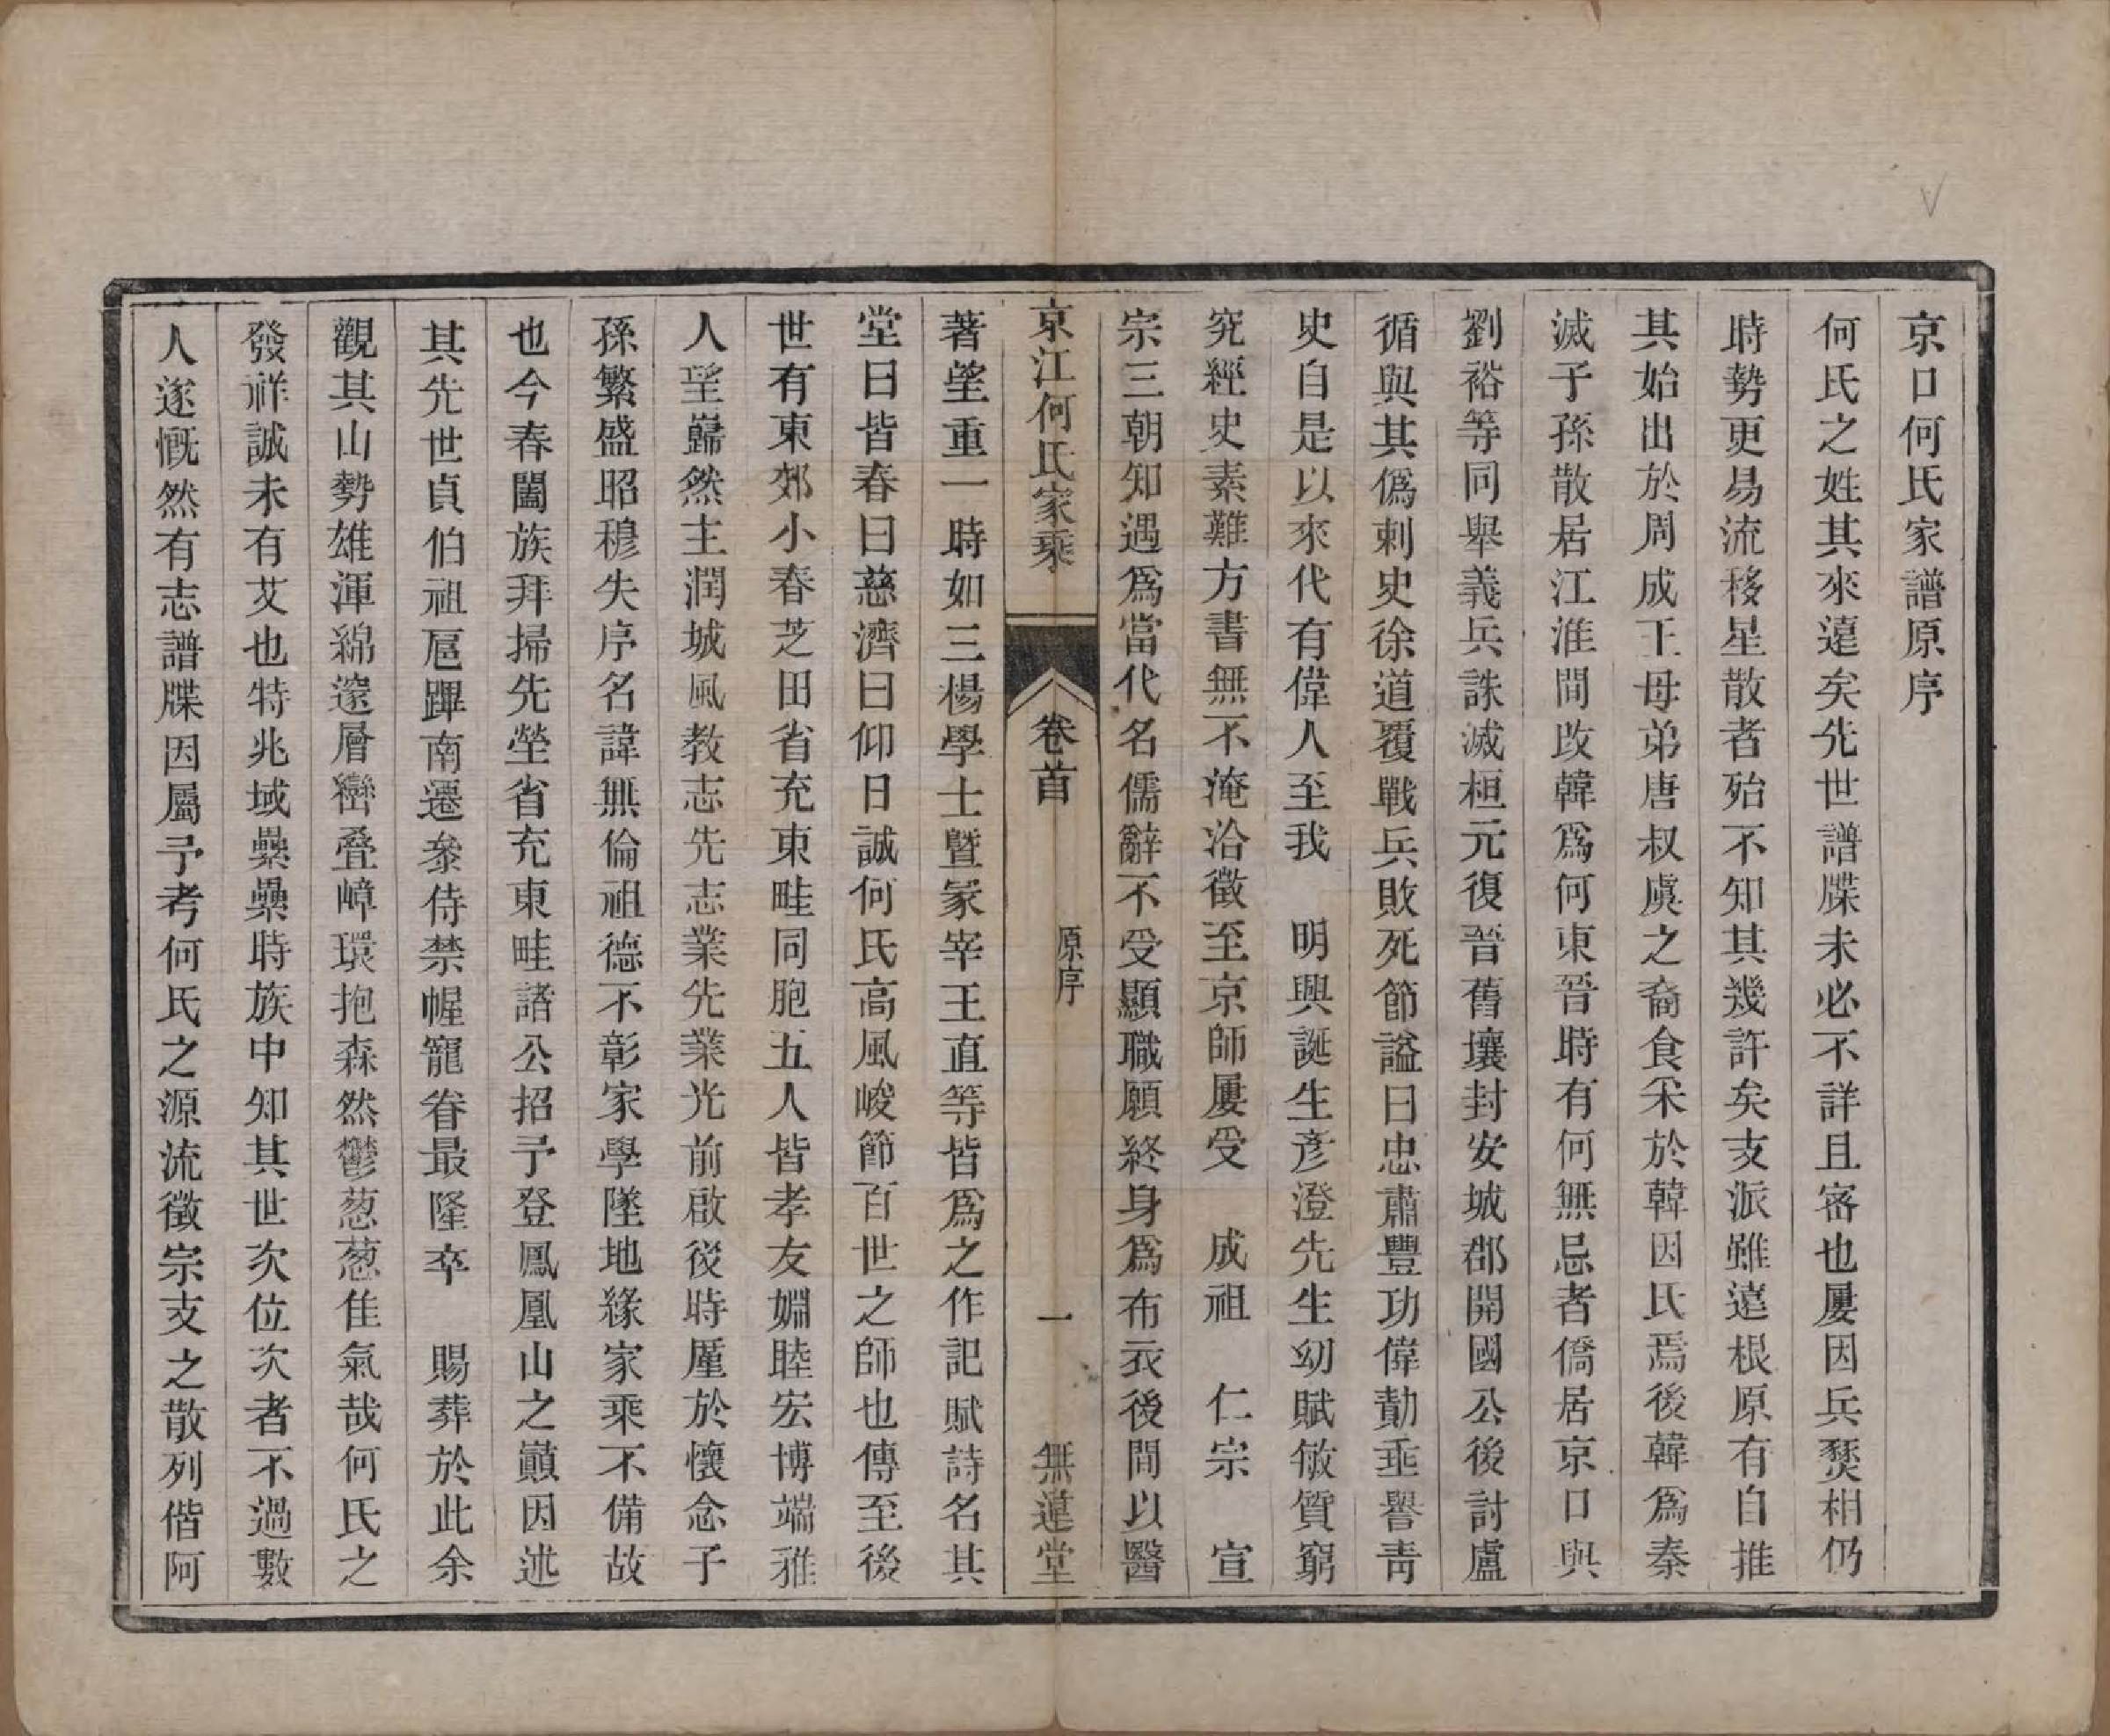 京口何氏家譜原序
何氏之姓其來遠矣先世譜牒未必不詳且密也屢因兵燹相仍
時勢更易流移星散者殆不知其幾許矣支派雖遠根原有自推
其始出於周成王母弟唐叔虞之裔食采於韓因氏焉後韓爲秦
滅子孫散居江淮間改韓爲何東晉時有何無忌者僑居京口與
劉裕等同舉義兵誅滅桓元復晉舊壤封安城郡開國公後討盧
循與其僞刺史徐道覆戰兵敗死節謚曰忠肅豐功偉勣垂譽青
史自是以來代有偉人至我　明興誕生彥澄先生幼賦敏質窮
究經史素難方書無不淹洽徵至京師屢受　成祖　仁宗　宣
宗三朝知遇爲當代名儒辭不受顯職願終身爲布衣後間以醫
京江何氏家乘　卷首　原序　一　無違堂
著望重一時如三楊學士曁冢宰王直等皆爲之作記賦詩名其
堂曰皆春曰慈濟曰仰日誠何氏高風峻節百世之師也傳至後
世有東郊小春芝田省充東畦同胞五人皆孝友婣睦宏博端雅
人望巋然主潤城風教志先志業先業光前啟後時厪於懷念子
孫繁盛昭穆失序名諱無倫祖德不彰家學墜地緣家乘不備故
也今春闔族拜掃先塋省充東畦諸公招予登鳳凰山之巔因述
其先世貞伯祖扈蹕南遷叅侍禁幄寵眷最隆卒　賜葬於此余
觀其山勢雄渾綿邃層巒疊嶂環抱森然鬱葱葱佳氣哉何氏之
發祥誠未有艾也特兆域纍纍時族中知其世次位次者不過數
人遂慨然有志譜牒因屬予考何氏之源流徵宗支之散列偕阿